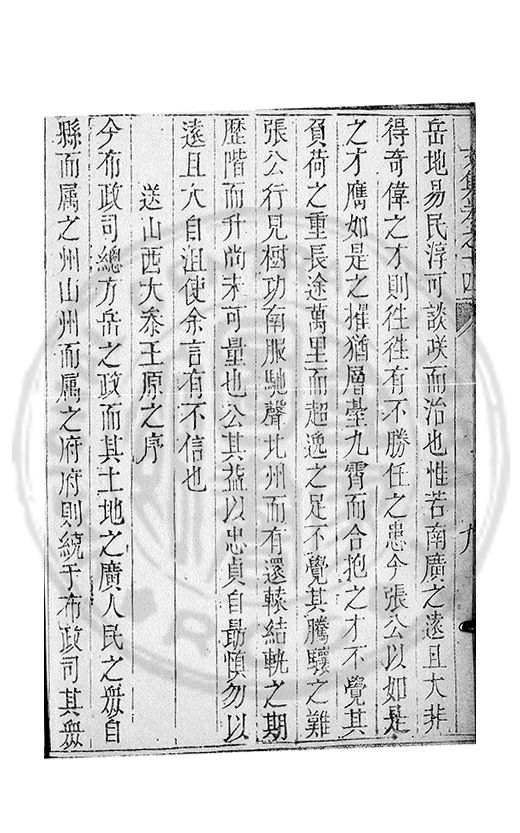 文集卷之十四
岳地易民淳可談咲而治也惟若南廣之遠且大非
得奇偉之才則徃徃有不勝任之患今張公以如是
之才膺如是之擢猶層臺九霄而合抱之才不覺其
負荷之重長途萬里而超逸之足不覺其騰驤之難
張公行見樹功南服馳聲北州而有還轅結軌之期
歷階而升尚未可量也公其益以忠貞自勗慎勿以
遠且大自沮使余言有不信也
送山西大叅王原之序
今布政司總方岳之政而其土地之廣人民之眾自
縣而属之州山州而属之府府則統于布政司其眾